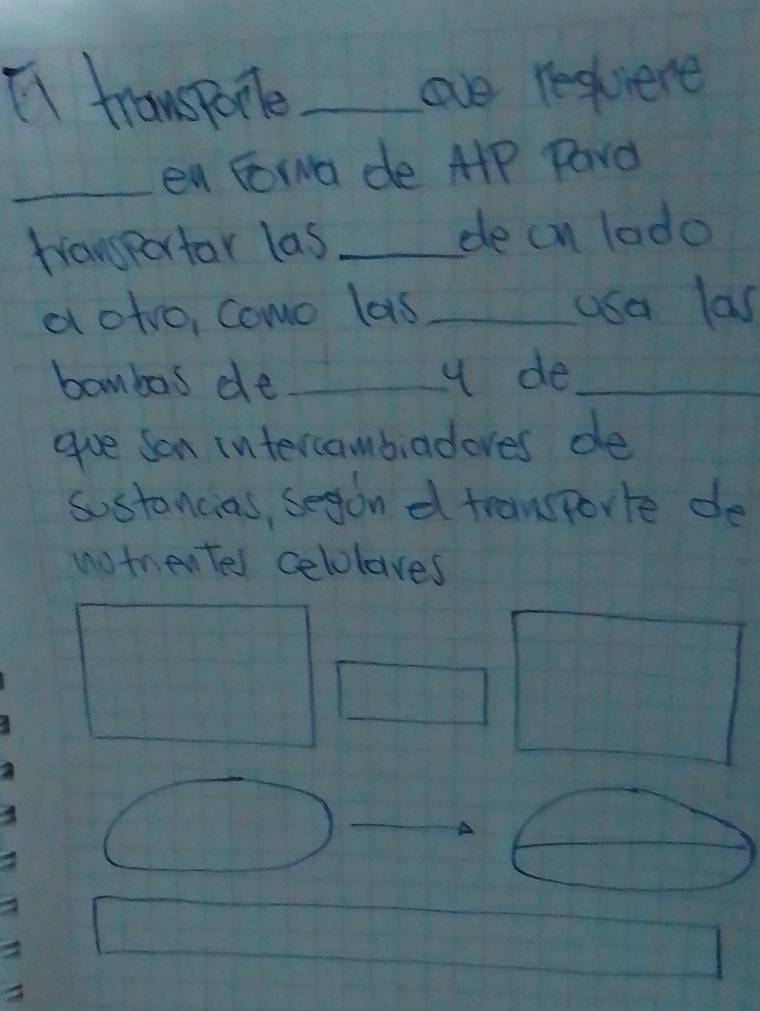 El transporte _____ que requiere
_____ en forma de ATP para
transportar las _____ de un lado
a otro, como las _____ usa las
bombas de _____ y de _____
que son intercambiadores de
sustancias, según el transporte de
nutrientes celulares